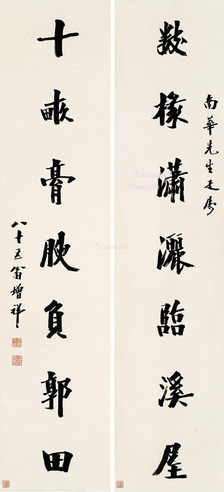 南華先生疋屬
數椽瀟灑臨溪屋
十畝膏腴負郭田
八十五翁增祥